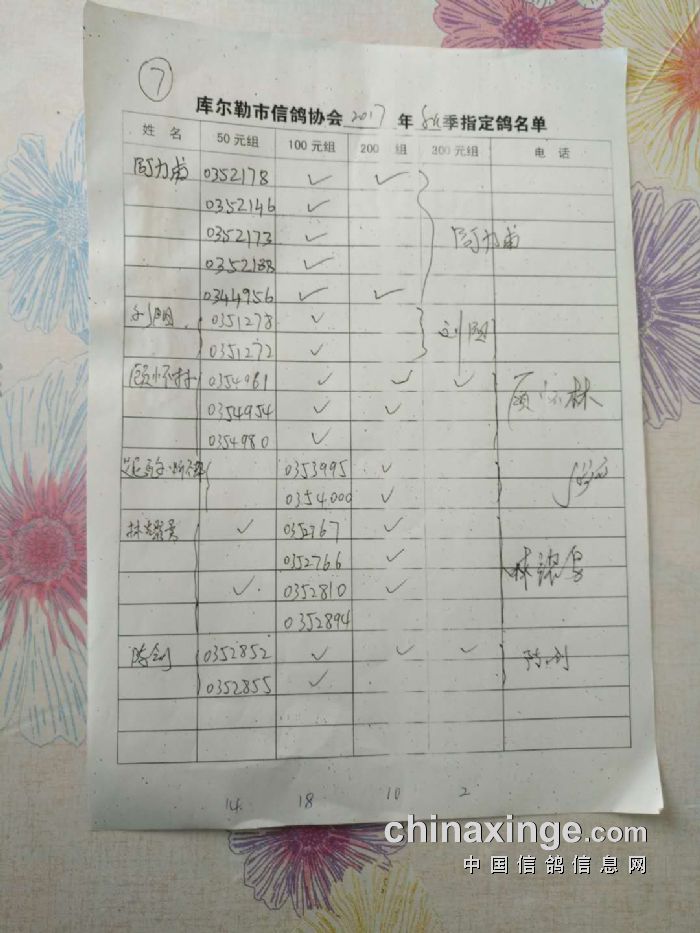 7
库尔勒市信鸽协会 2017 年 秋季指定鸽名单
姓 名 50元组 100元组 200 组 300元组 电 话
阿力甫 0352178 ✓ ✓ 阿力甫
0352146 ✓
0352173 ✓
0352188 ✓
0344956 ✓ ✓
刘明 0351278 ✓ 刘明
0351272 ✓
顾怀林 0354961 ✓ ✓ ✓ 顾怀林
0354954 ✓ ✓
0354980 ✓
0353995 ✓
0354000 ✓
林 ✓ 0352767 ✓ 林
0352766 ✓
✓ 0352810 ✓
0352894
陈剑 0352852 ✓ ✓ ✓ 陈剑
0352855 ✓
14 18 10 2
chinaxinge.com
中国信鸽信息网